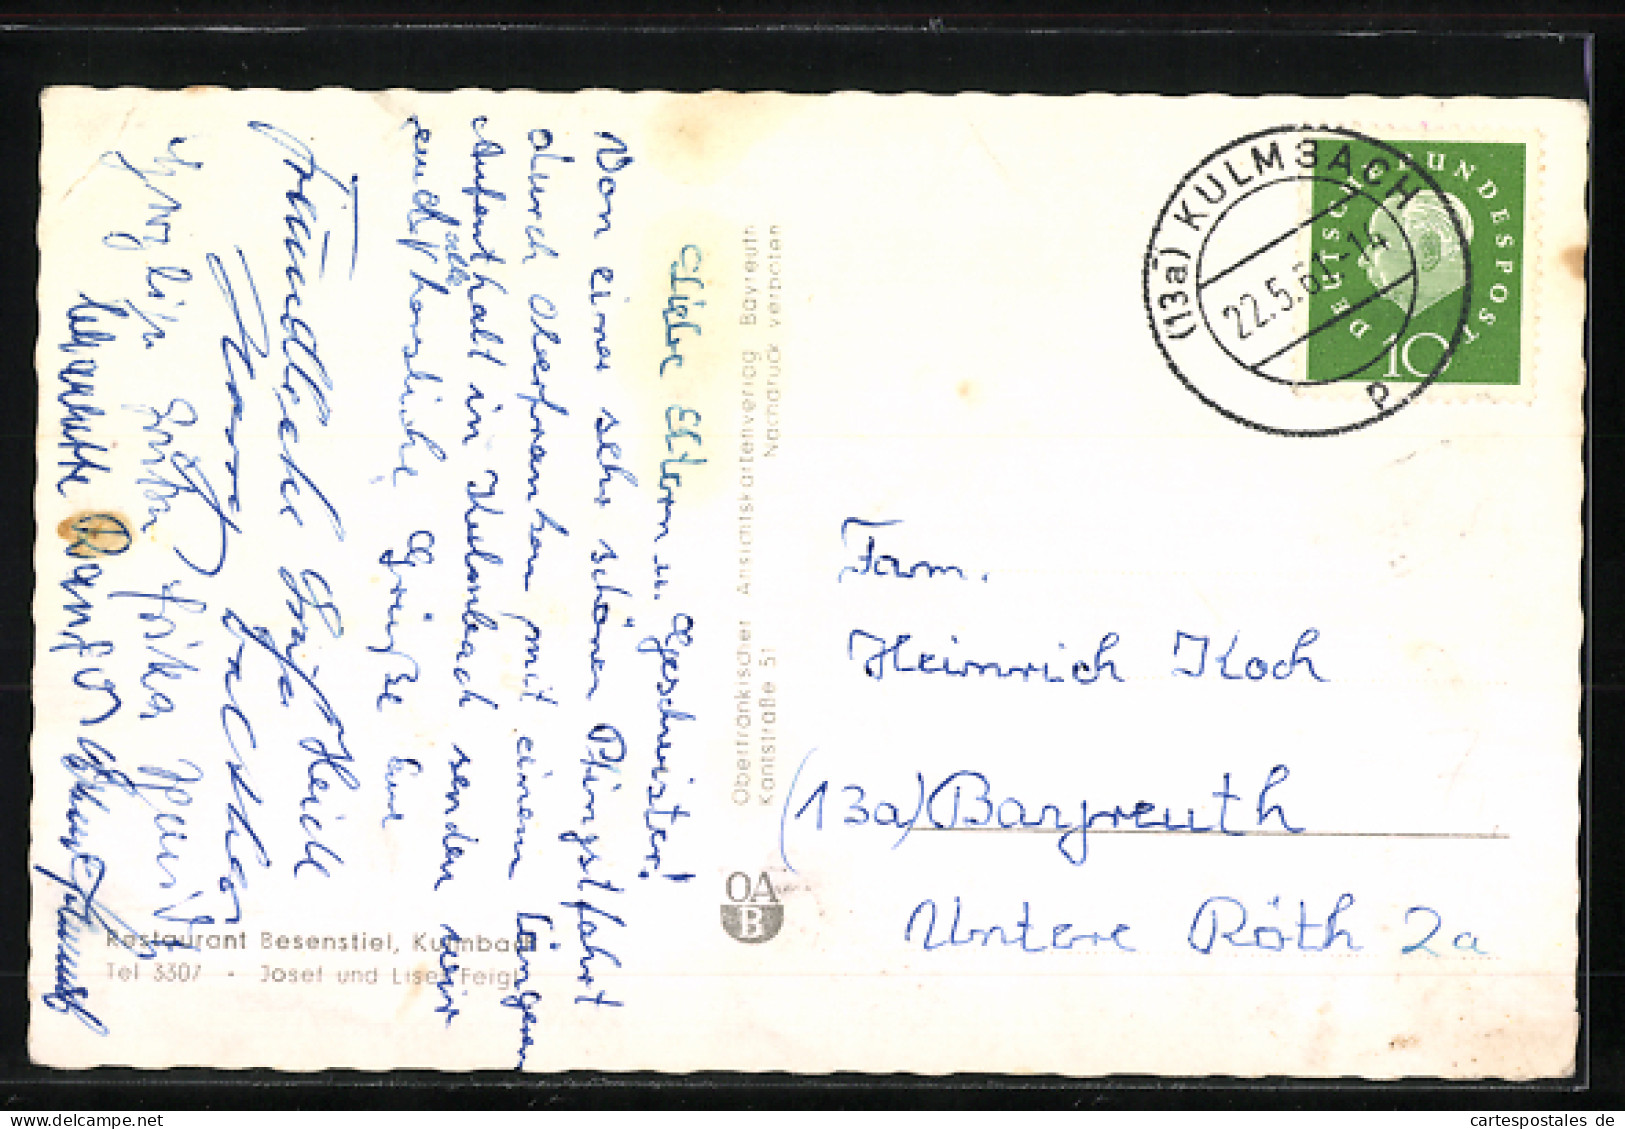 Liebe Eltern u. Geschwister!
Von einer sehr schönen Pfingstfahrt
durch Oberfranken mit einem längeren
Aufenthalt in Kulmbach senden wir
euch alle herzliche Grüße Eure
Freundliche Grüße
Restaurant Besenstiel, Kulmbach
Tel 3307 • Josef und Liesel Feigl
Oberfränkischer Ansichtskartenverlag Bayreuth
Kantstraße 51 Nachdruck verboten
OA
B
(13a) KULMBACH
22.5.61-14
p
DEUTSCHE BUNDESPOST
10
Fam.
Heinrich Koch
(13a) Bayreuth
Untere Röth 2a
cartespostales de